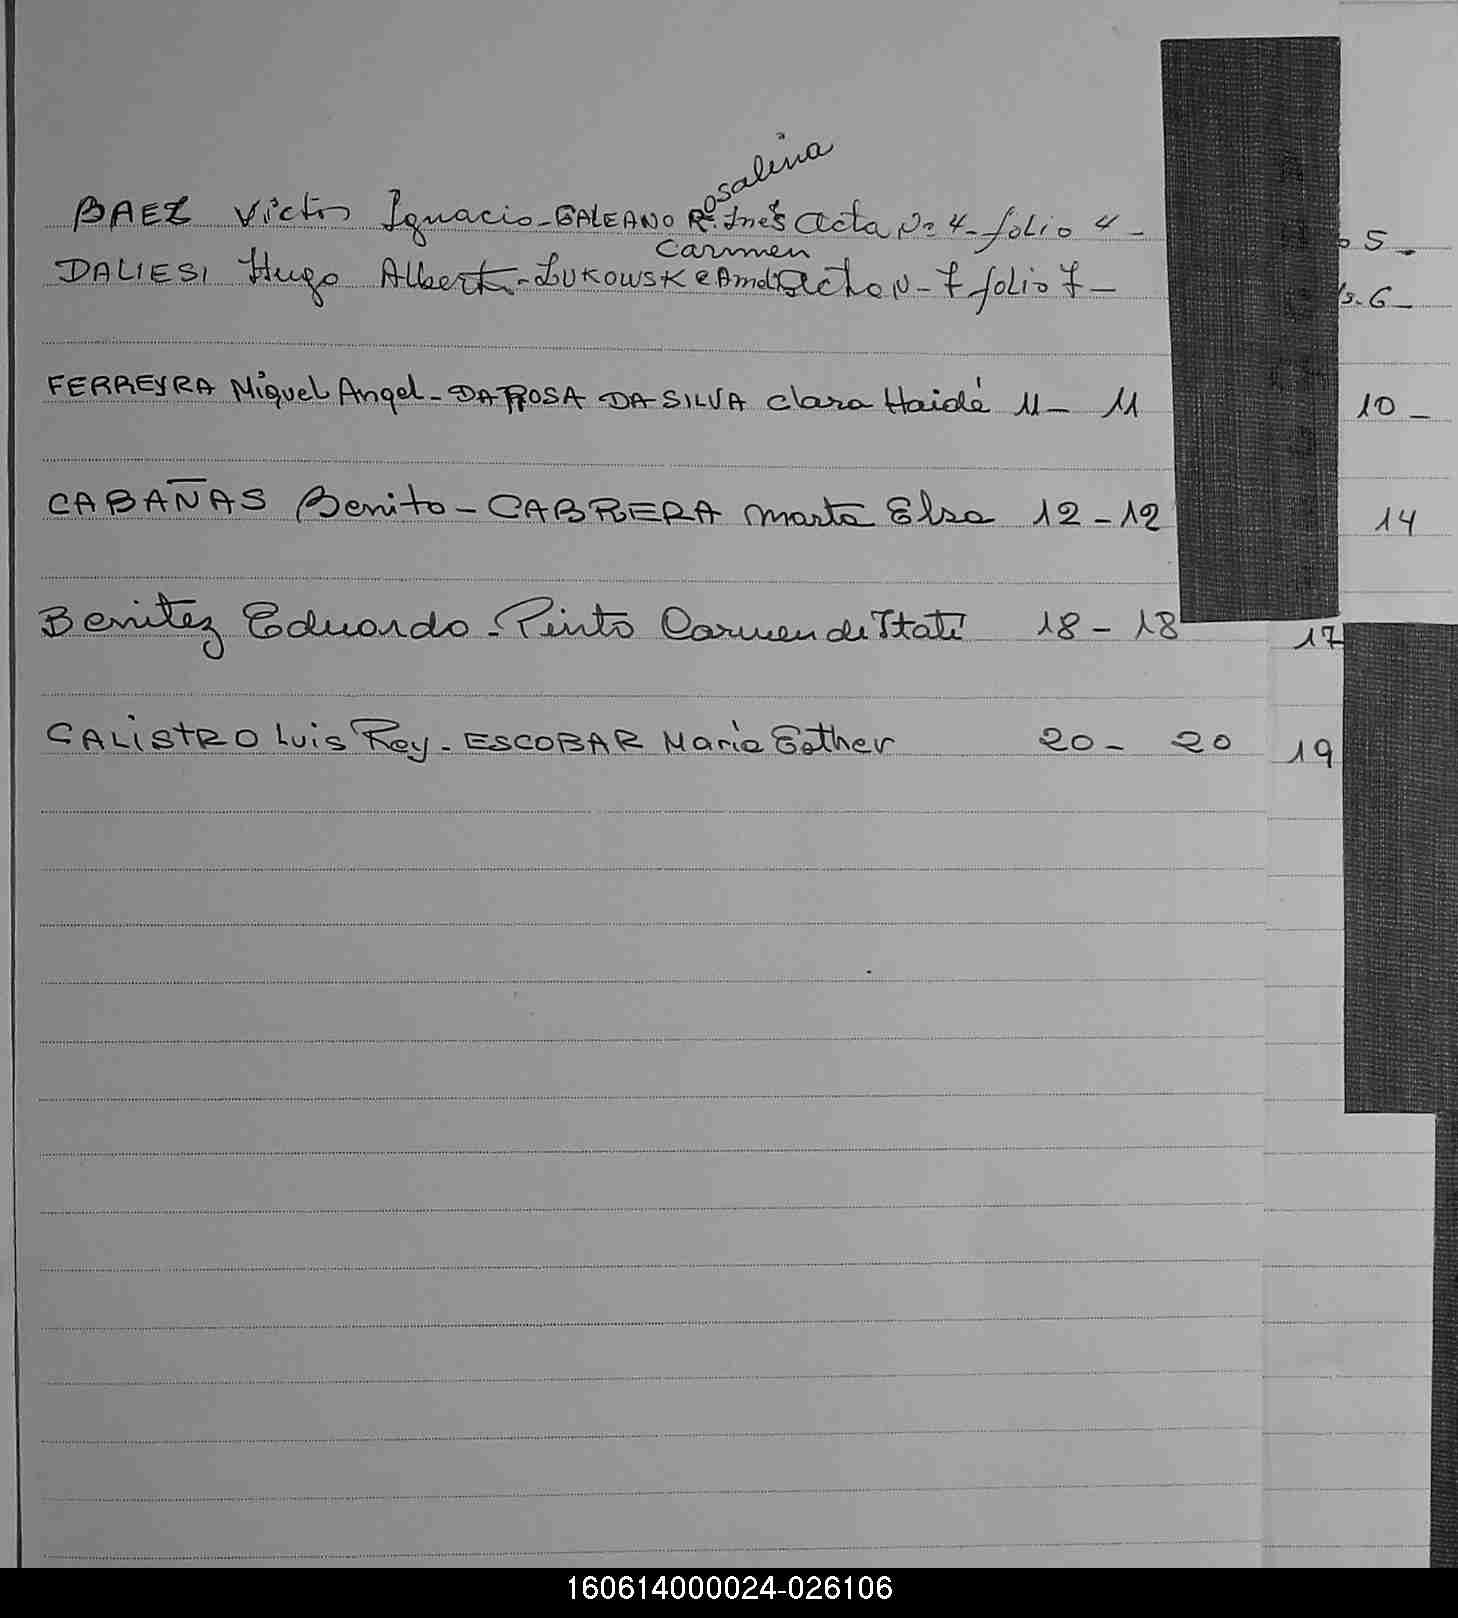 Rosalina
BAEZ Victor Ignacio - GALEANO Rº. Inés Acta Nº 4 - folio 4 - 5 -
Carmen
DALIESI Hugo Alberto - LUKOWSK Acta N - 7 folio 7 - 6 -
FERREYRA Miguel Angel - DA ROSA DA SILVA Clara Haidé 11 - 11 10 -
CABAÑAS Benito - CABRERA Marta Elsa 12 - 12 14
Benitez Eduardo - Pinto Carmen de Itatí 18 - 18 17
CALISTRO Luis Rey - ESCOBAR Maria Esther 20 - 20 19
160614000024-026106